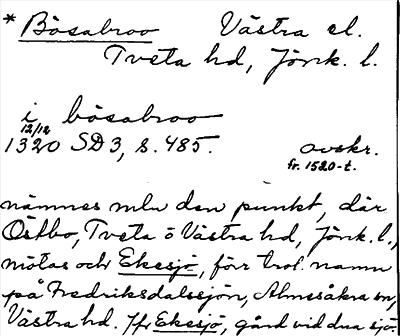 * Bösabroo Västra el.
Tveta hd, Jönk. l.
i bösabroo
12/12
1320 SD3, s. 485. avskr.
fr. 1520-t.
nämnes mln den punkt, där
Östbo, Tveta o Västra hd, Jönk. l.,
mötas och Ekesjö, förr trol. namn
på Fredriksdalssjön, Almesåkra sn,
Västra hd. Jfr Ekesjö, gård vid dsa sjö